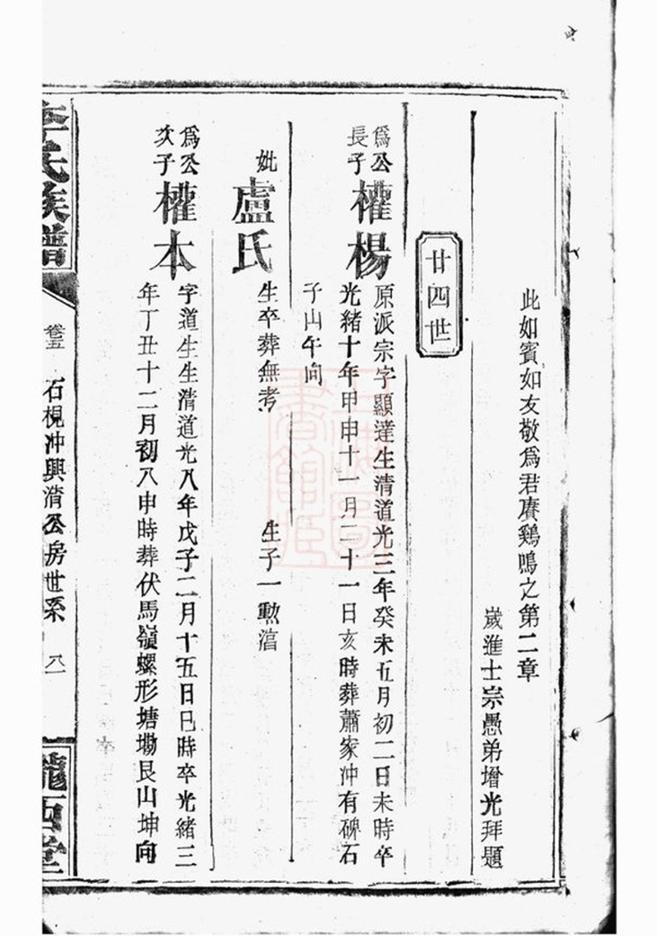 此如賓如友敬爲君賡鷄鳴之第二章
歲進士宗愚弟增光拜題
廿四世
爲公長子
權楊
原派宗字顯達生清道光三年癸未五月初二日未時卒
光緒十年甲申十一月二十一日亥時葬蕭家沖有碑石
子山午向
妣
盧氏
生卒葬無考
生子一勲
爲公次子
權本
字道生生清道光八年戊子二月十五日巳時卒光緒三
年丁丑十二月初八申時葬伏馬嶺螺形塘塝艮山坤向
李氏族譜
卷五
石梘冲興清公房世系
八一
隴西堂